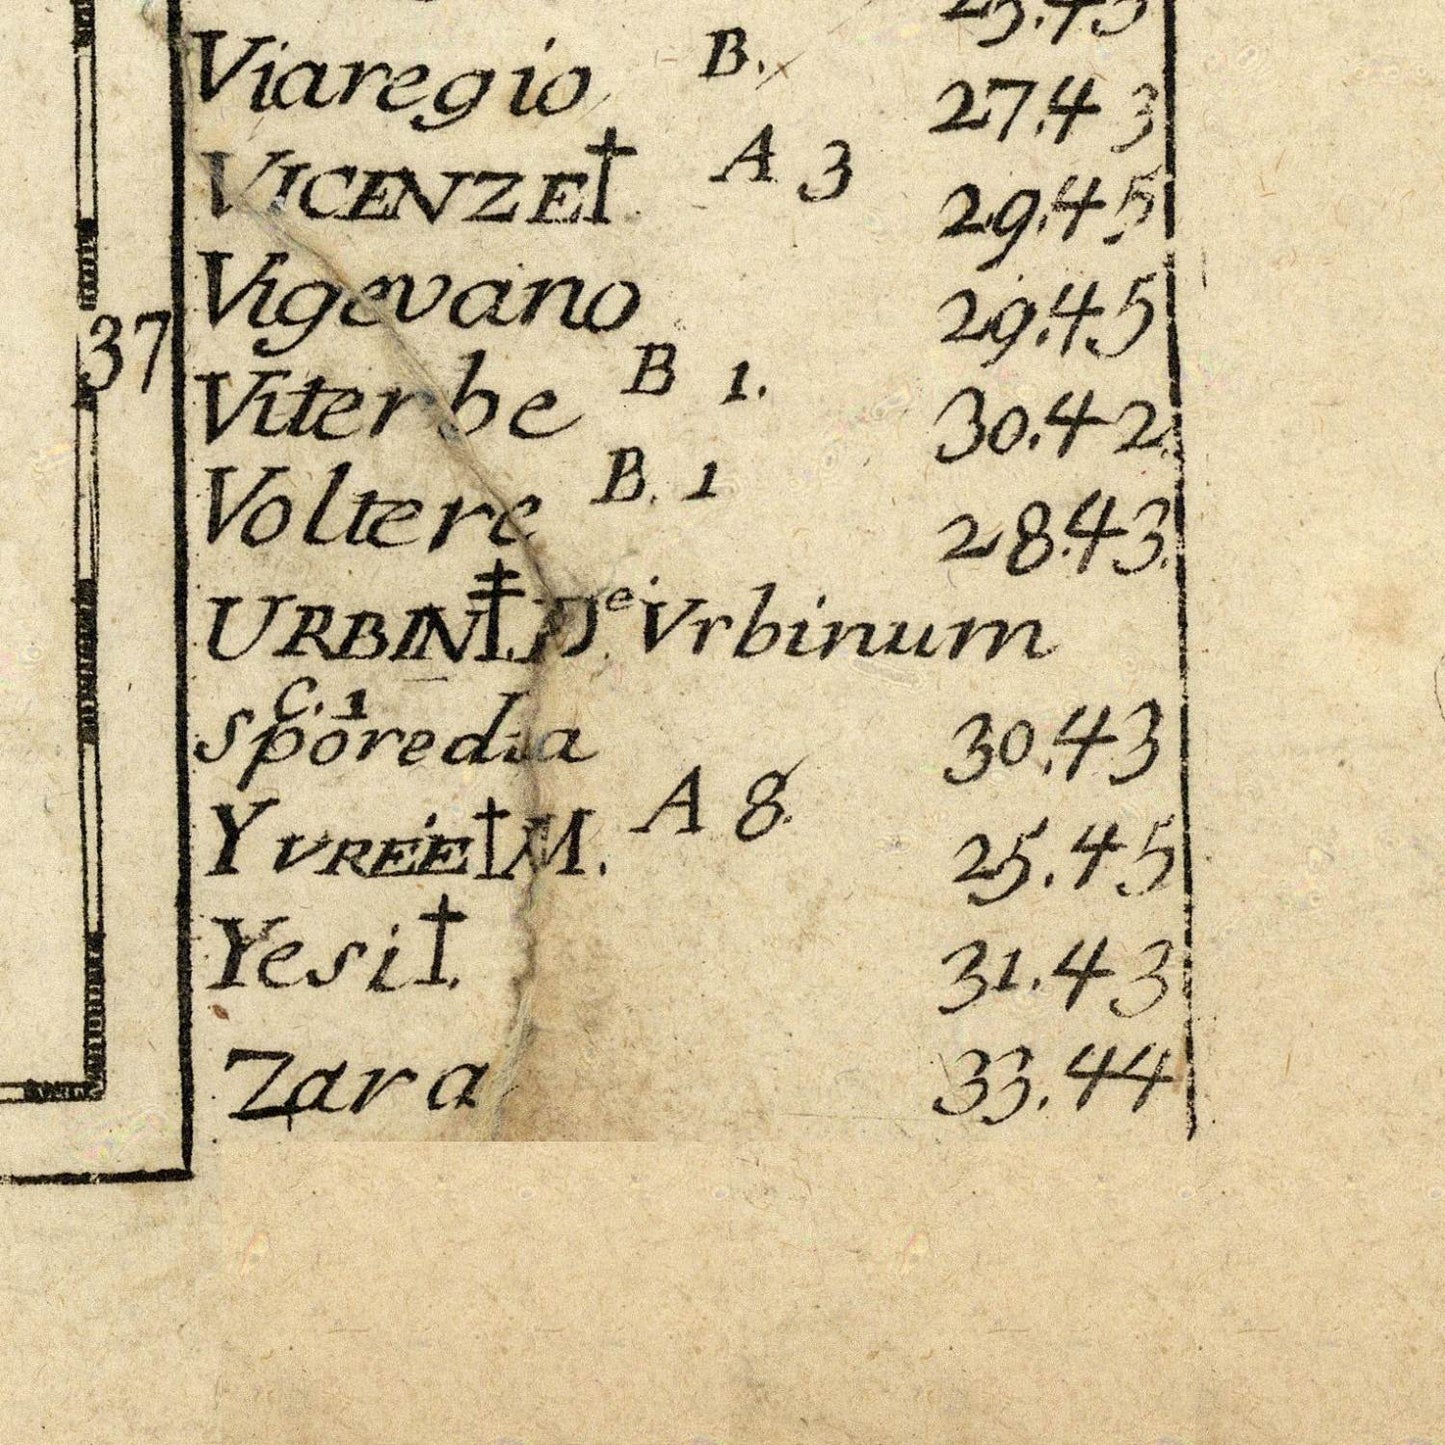 Viaregio B. 27.43
VICENZE† A 3 29.45
Vigevano 29.45
37
Viterbe B 1. 30.42
Voltere B. 1 28.43.
URBIN‡.D.e Vrbinum
C. 1
sporedia 30.43
YVRÉE†M. A 8. 25.45
Yesi†. 31.43
Zara 33.44